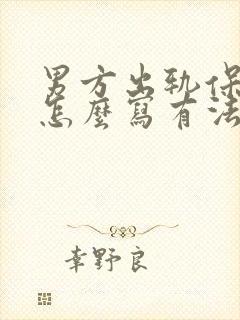 男方出軌保
怎麼寫有法
幸野良